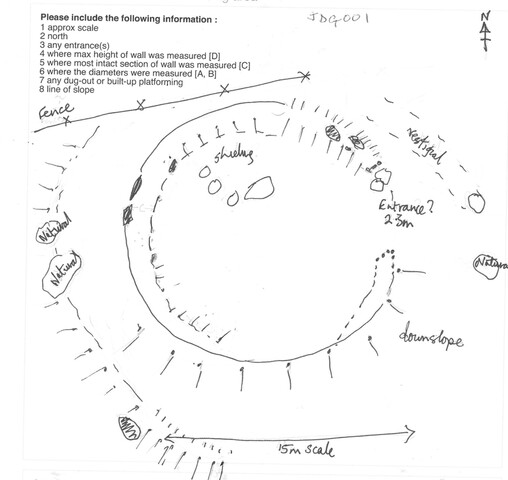 Please include the following information :
JDG001
N
1 approx scale
2 north
3 any entrance(s)
4 where max height of wall was measured [D]
5 where most intact section of wall was measured [C]
6 where the diameters were measured [A, B]
7 any dug-out or built-up platforming
8 line of slope
Fence
vestigial
shieling
Entrance?
2.3m
Natural
Natural
Natural
downslope
15m scale